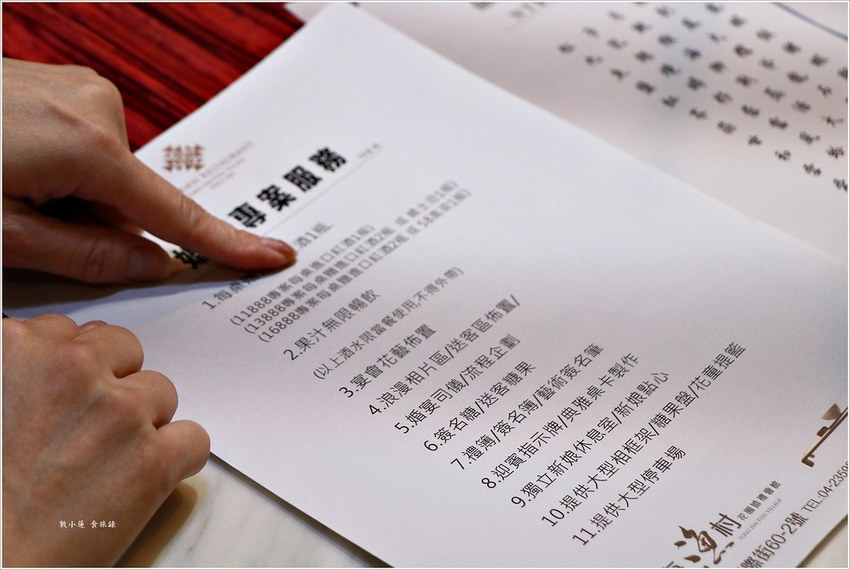 專案服務
1.每桌
酒1瓶.
(11888專案每桌贈進口紅酒1瓶)
(13888專案每桌贈進口紅酒2瓶 或
(16888專案每桌贈進口紅酒2瓶 或 58高粱1瓶)
2.果汁無限暢飲
(以上酒水限當餐使用,不得外帶)
3.宴會花藝佈置
4.浪漫相片區/送客區佈置/
5.婚宴司儀/流程企劃
6.簽名糖/送客糖果
7.禮簿/簽名簿/藝術簽名筆
8.迎賓指示牌/典雅桌卡製作
9.獨立新娘休息室/新娘點心
10.提供大型相框架/糖果盤/花童提籃
11.提供大型停車場
漁村
花園婚禮會館
際街60-2號 TEL:04-2359
敦小蓮 食旅錄